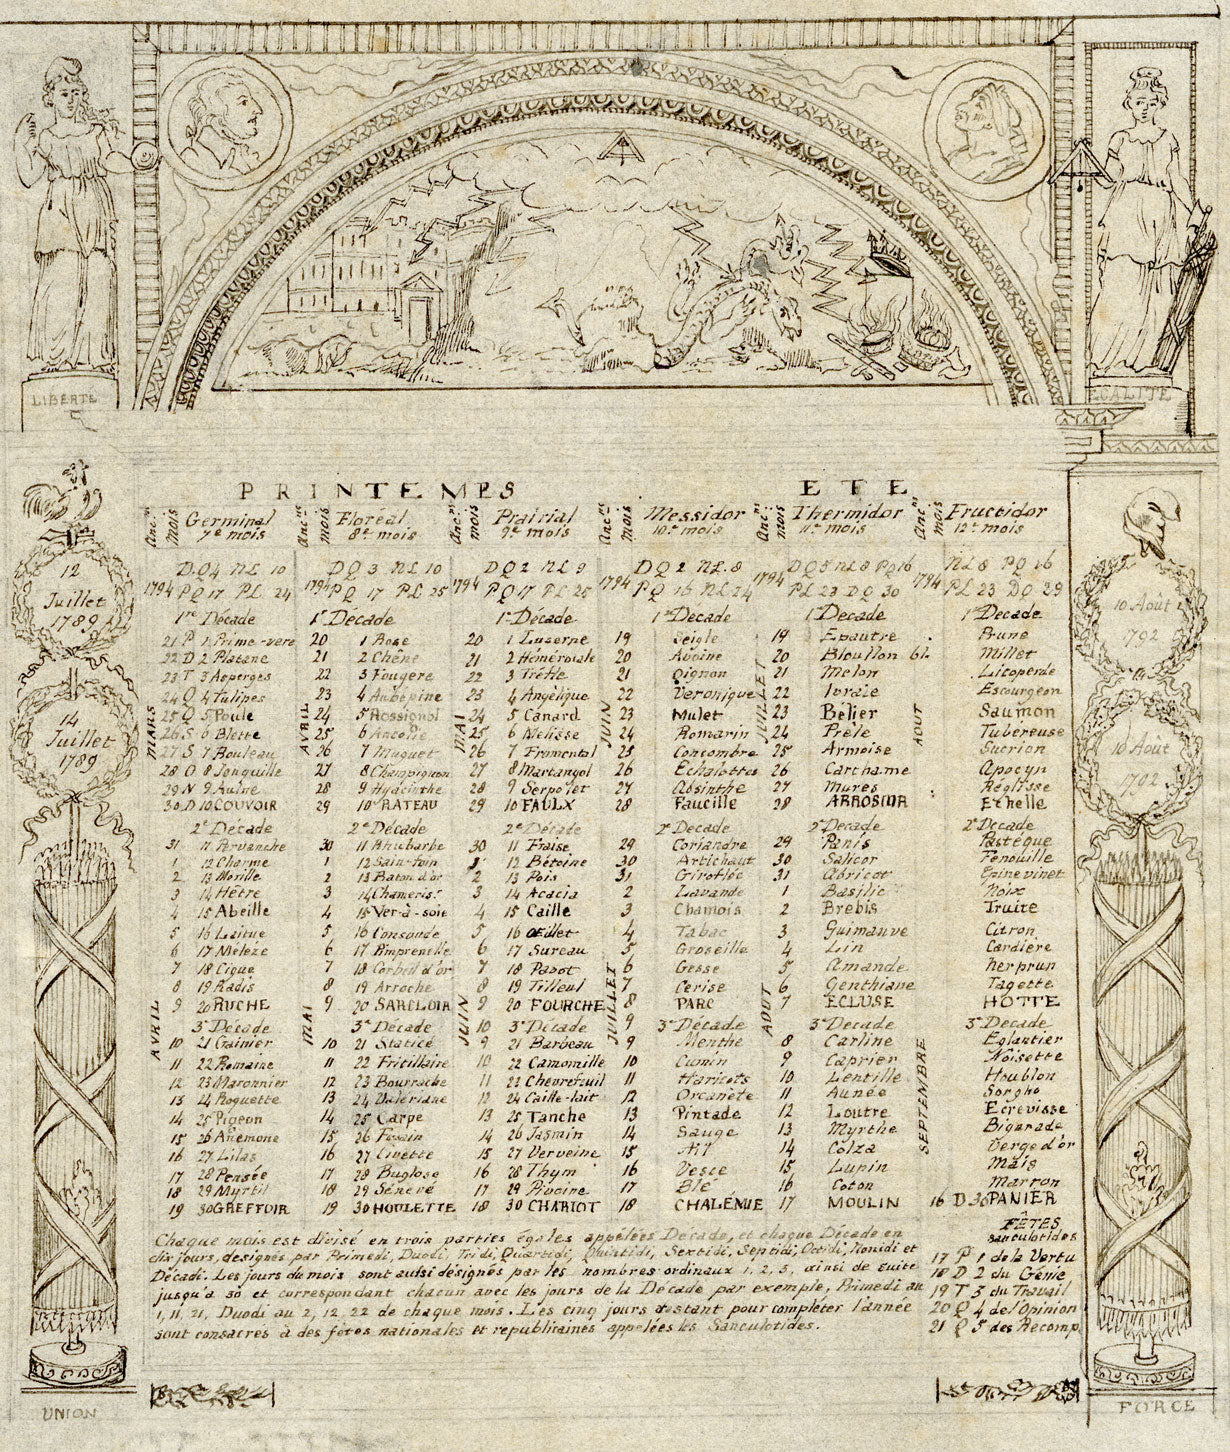 LIBERTÉ
EGALITÉ
PRINTEMPS
ETE
12
Juillet
1789
14
Juillet
1789
10 Août
1792
10 Août
1792
Germinal
7e mois
Floréal
8e mois
Prairial
9e mois
Messidor
10e mois
Thermidor
11e mois
Fructidor
12e mois
1794
DQ 4 NL 10
PQ 17 PL 24
1re Décade
MARS
21 P 1 Prime-vere
22 D 2 Platane
23 T 3 Asperges
24 Q 4 Tulipes
25 Q 5 Poule
26 S 6 Blette
27 S 7 Bouleau
28 O 8 Jonquille
29 N 9 Aulne
30 D 10 COUVOIR
2e Décade
31 11 Pervanche
1 12 Charme
2 13 Morille
3 14 Hêtre
4 15 Abeille
5 16 Laitue
6 17 Mélèze
7 18 Cigue
8 19 Radis
9 20 RUCHE
AVRIL
3e Décade
10 21 Gainier
11 22 Romaine
12 23 Maronnier
13 24 Roquette
14 25 Pigeon
15 26 Anemone
16 27 Lilas
17 28 Pensée
18 29 Myrtil
19 30 GREFFOIR
1794
DQ 3 NL 10
PQ 17 PL 25
1e Décade
AVRIL
20 1 Rose
21 2 Chêne
22 3 Fougere
23 4 Aubépine
24 5 Rossignol
25 6 Ancolie
26 7 Muguet
27 8 Champignon
28 9 Hyacinthe
29 10 RATEAU
2e Décade
30 11 Rhubarbe
1 12 Sain-foin
2 13 Baton d'or
3 14 Chameris.
4 15 Ver-à-soie
5 16 Consoude
6 17 Pimprenelle
7 18 Corbeil d'or
8 19 Arroche
9 20 SARCLOIR
MAI
3e Décade
10 21 Staticé
11 22 Fritillaire
12 23 Bourrache
13 24 Valériane
14 25 Carpe
15 26 Fusain
16 27 Civette
17 28 Buglose
18 29 Sénevé
19 30 HOULETTE
1794
DQ 2 NL 9
PQ 17 PL 25
1e Décade
MAI
20 1 Luzerne
21 2 Hémérocale
22 3 Trèfle
23 4 Angélique
24 5 Canard
25 6 Melisse
26 7 Fromental
27 8 Martangol
28 9 Serpolet
29 10 FAULX
2e Décade
30 11 Fraise
12 Bétoine
2 13 Pois
3 14 Acacia
4 15 Caille
5 16 Œillet
6 17 Sureau
7 18 Pavot
8 19 Tilleul
9 20 FOURCHE
JUIN
10 3e Décade
9 21 Barbeau
10 22 Camomille
11 23 Chevrefeuil
12 24 Caille-lait
13 25 Tanche
14 26 Jasmin
15 27 Verveine
16 28 Thym
17 29 Pivoine
18 30 CHARIOT
1794
DQ 2 NL 8
1e Décade
JUIN
19 Seigle
20 Avoine
21 Oignon
22 Veronique
23 Mulet
24 Romarin
25 Concombre
26 Echalottes
27 Absinthe
28 Faucille
2e Décade
29 Coriandre
30 Artichaut
31 Giroflée
2 Lavande
3 Chamois
4 Tabac
5 Groseille
6 Gesse
7 Cerise
8 PARC
JUILLET
9 3e Décade
9 Menthe
10 Cumin
11 Haricots
12 Orcanete
13 Pintade
14 Sauge
15 Ail
16 Vesce
17 Blé
18 CHALEMIE
1794
DQ 5 NL 8 PQ 16
PL 23 DQ 30
1e Décade
JUILLET
19 Epautre
20 Bloullon bl.
21 Melon
22 Ivraie
23 Bélier
24 Prêle
25 Armoise
26 Carthame
27 Mures
28 ARROSOIR
2e Décade
29 Panis
30 Salicor
31 Abricot
1 Basilic
2 Brebis
3 Guimauve
4 Lin
5 Amande
6 Genthiane
7 ECLUSE
AOUT
3e Décade
8 Carline
9 Caprier
10 Lentille
11 Aunée
12 Loutre
13 Myrthe
14 Colza
15 Lupin
16 Coton
17 MOULIN
1794
NL 8 PQ 16
PL 23 DQ 29
1e Décade
AOUT
Prune
Millet
Licoperde
Escourgeon
Saumon
Tubereuse
Sucrion
Apocyn
Réglisse
Echelle
2e Décade
Pastéque
Fenouille
Epine vinet
Noix
Truite
Citron
Cardière
Nerprun
Tagette
HOTTE
3e Décade
SEPTEMBRE
Eglantier
Noisette
Houblon
Sorgho
Ecrevisse
Bigarade
Verge d'or
Mais
Marron
16 D 30 PANIER
FÊTES
sanculotides
17 P 1 de la Vertu
18 D 2 du Génie
19 T 3 du Travail
20 Q 4 de l'Opinion
21 Q 5 des Recomp.
Chaque mois est divisé en trois parties égales appelées Décade, et chaque Décade en
dix jours, designés par Primedi, Duodi, Tridi, Quartidi, Quintidi, Sextidi, Septidi, Octidi, Nonidi et
Décadi. Les jours du mois sont aussi désignés par les nombres ordinaux 1, 2, 3, ainsi de suite
jusqu'a 30 et correspondant chacun avec les jours de la Décade par exemple, Primedi au
1, 11, 21, Duodi au 2, 12, 22 de chaque mois. Les cinq jours restant pour compléter l'année
sont consacrés à des fêtes nationales et republicaines appelées les Sanculotides.
UNION
FORCE